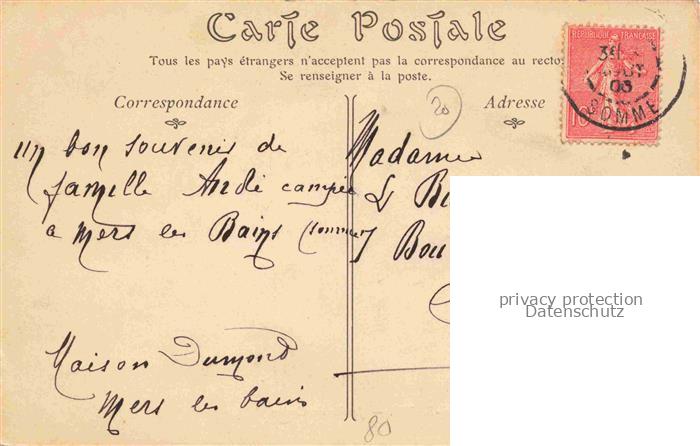 Carte Postale
Tous les pays étrangers n'acceptent pas la correspondance au recto
Se renseigner à la poste.
Correspondance
Adresse
20
RÉPUBLIQUE FRANÇAISE
SOMME
10
un bon souvenir de
famille André campée
a Mers les Bains (Somme)
Maison Dumond
Mers les bains
Madame
L Bu
7 Bou
80
privacy protection
Datenschutz